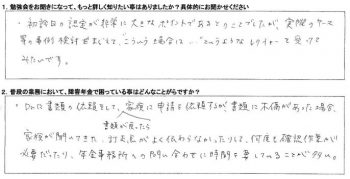 1. 勉強会をお聞きになって、もっと詳しく知りたい事はありましたか？具体的にお聞かせください
・初診日の認定が非常に大きなポイントであるとのことでしたが、実際のケース
等の事例検討をまじえて、"こういう場合は…"というようなレクチャーを受けて
みたいです。
2. 普段の業務において、障害年金で困っている事はどんなことがらですか？
・Drに書類の依頼をして、家族に申請を依頼するが、書類に不備があった場合、
書類が戻ったら
家族が聞いてきた、訂正点がよく伝わらなかったりして、何度も確認作業が
必要だったり、年金事務所への問い合わせに時間を要していることが多い。